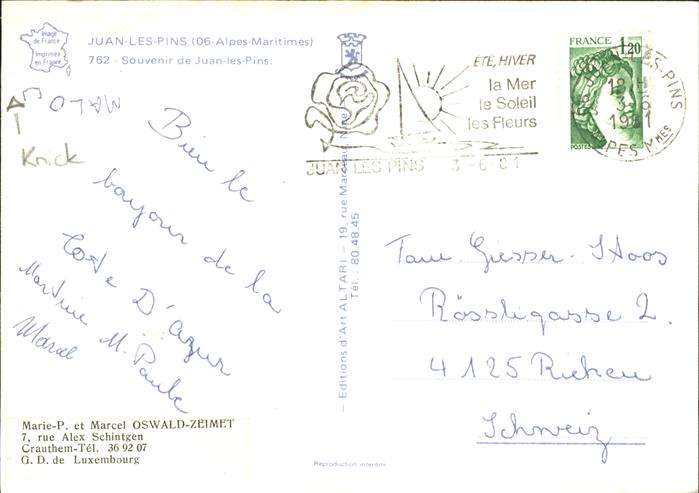 Image
de France
Imprimée
en France
JUAN-LES-PINS (06-Alpes-Maritimes)
762 - Souvenir de Juan-les-Pins.
MALO
Knick
Bien le
bonjour de la
Côte D'Azur
Martine M. Paule
Marcel
Marie-P. et Marcel OSWALD-ZEIMET
7, rue Alex Schintgen
Crauthem-Tél. 36 92 07
G. D. de Luxembourg
— Editions d'Art ALTARI — 19, rue Marceau, Nice
Tél.: 80.48.45
ÉTÉ, HIVER
la Mer
le Soleil
les Fleurs
JUAN LES PINS 3-6-81
FRANCE 1,20
POSTES
LES PINS
18 H
3-6
1981
ALPES Mmes
Tam. Giesser-Stoos
Rössligasse 2.
4125 Riehen
Schweiz
Reproduction interdite